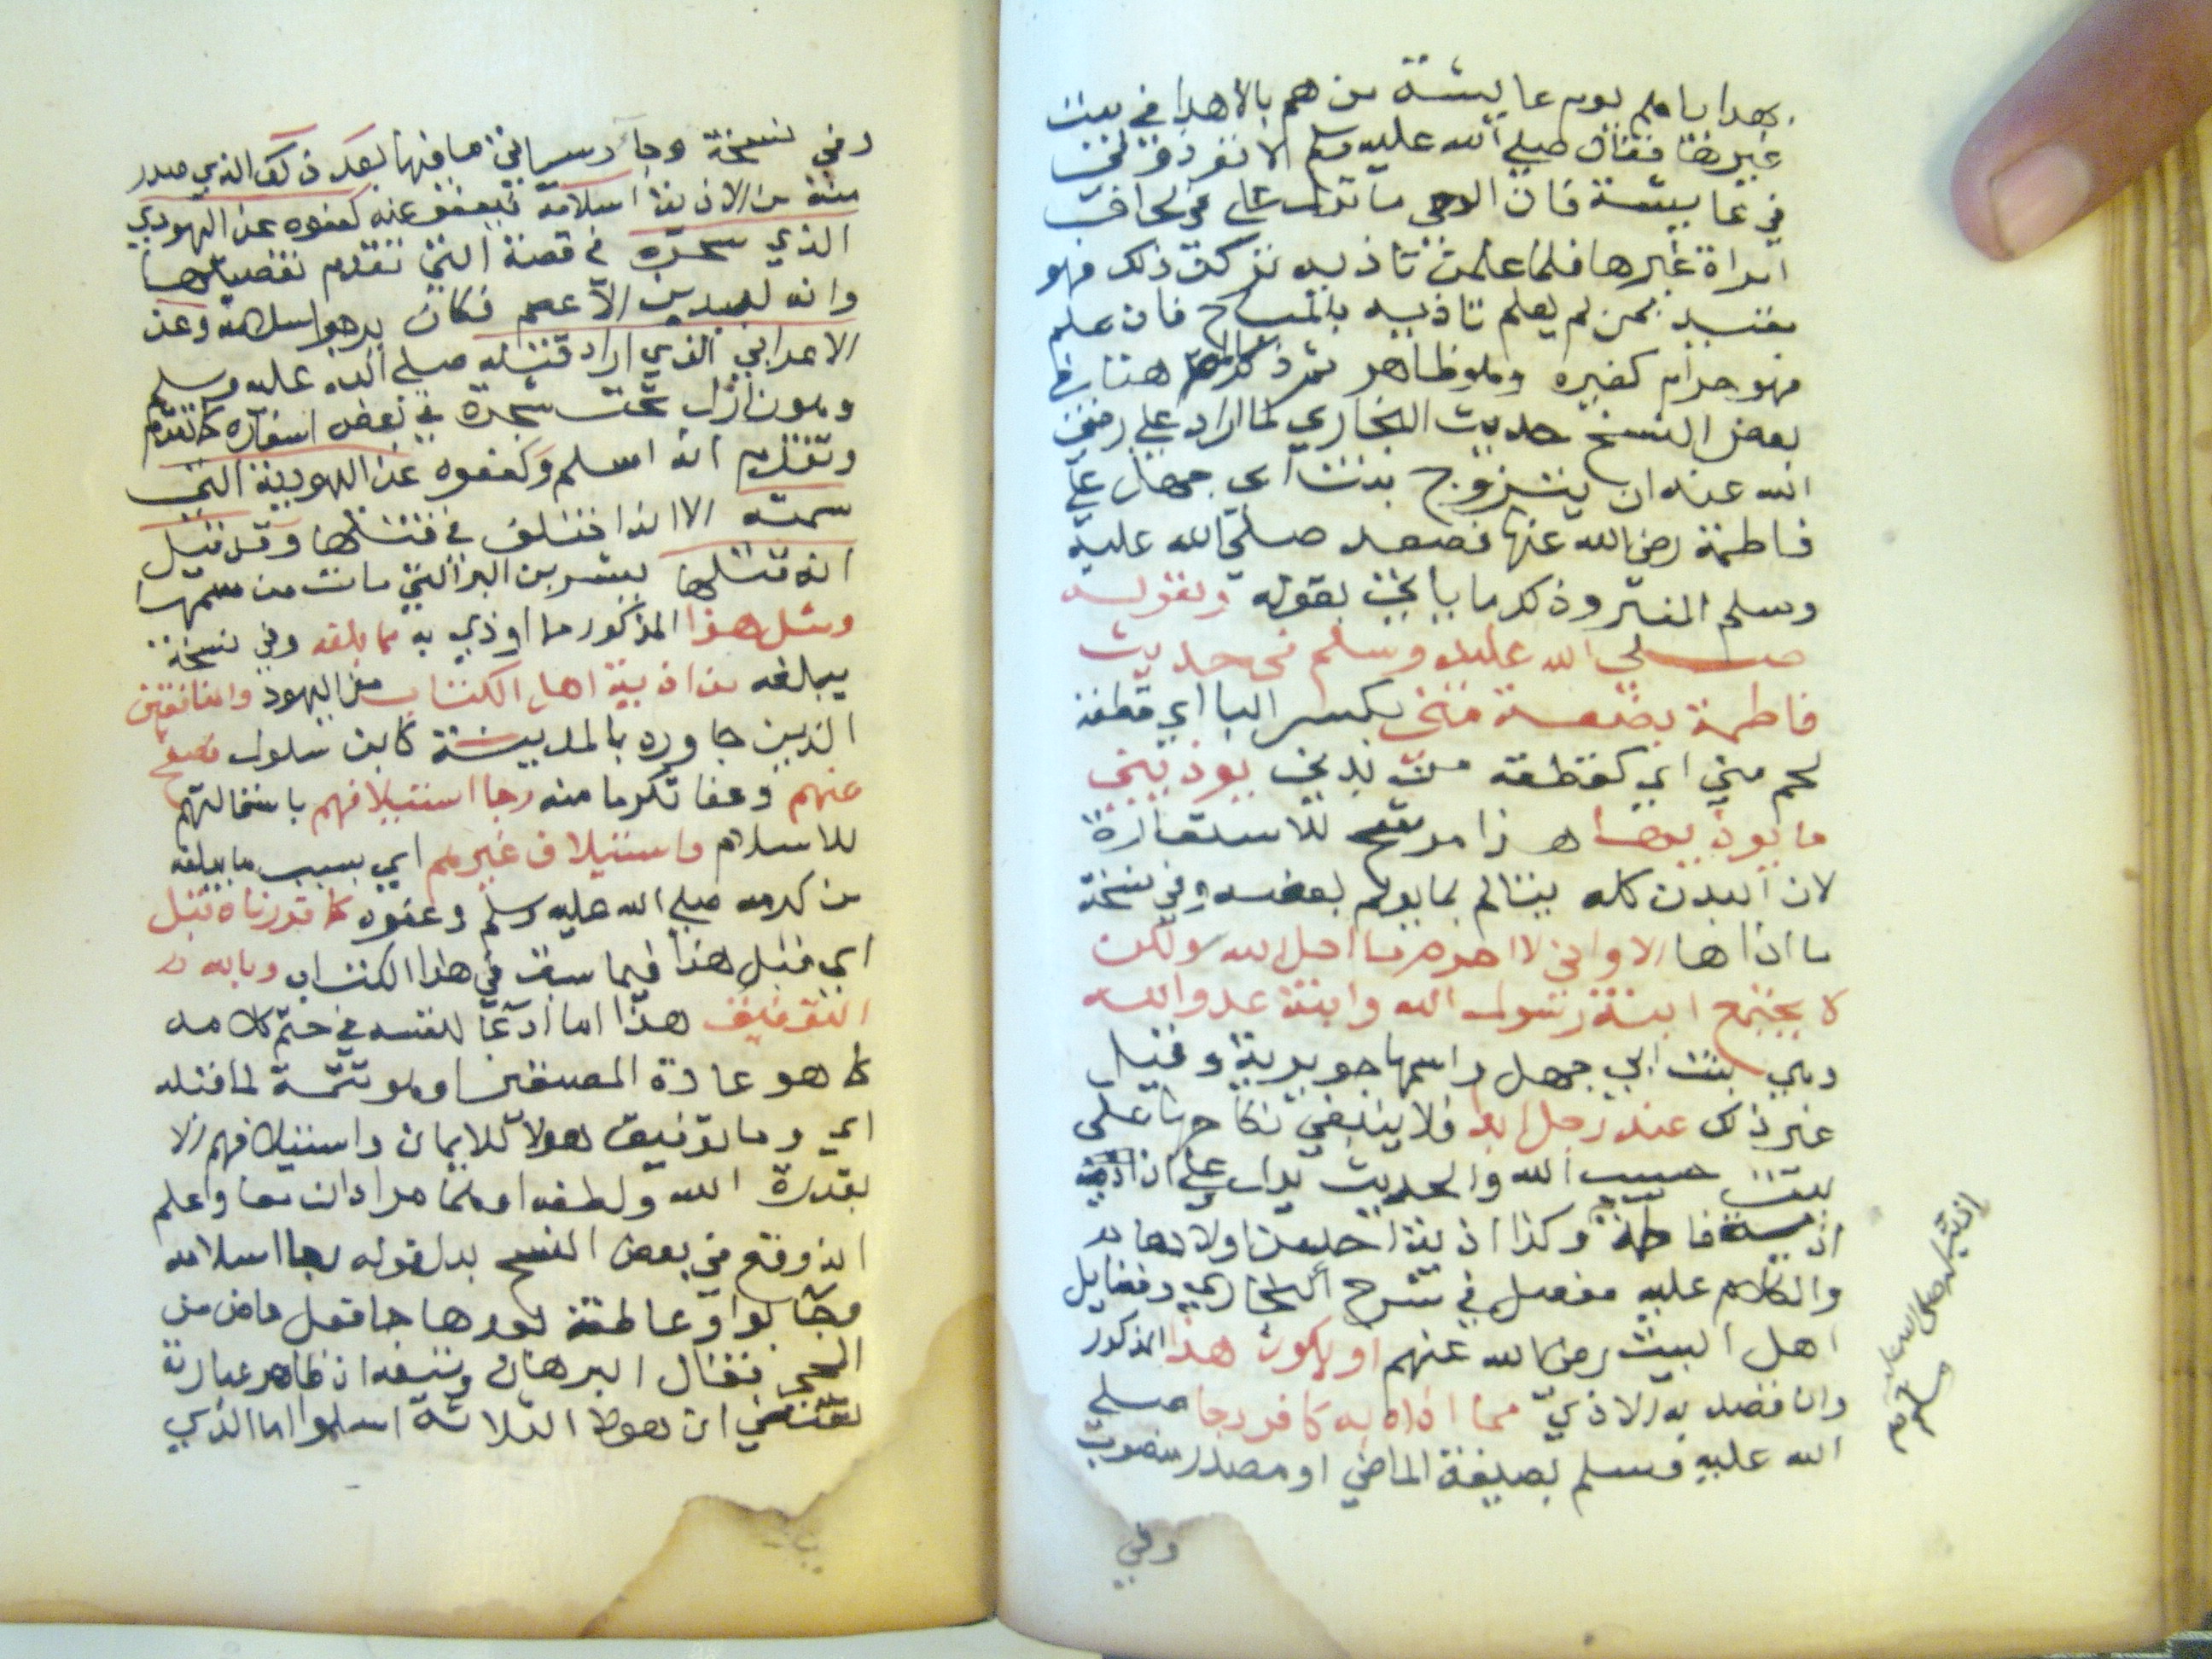 بهداياهم يوم عايشة من هم بالاهدا في بيت
غيرها فقال صلي الله عليه وسلم لا تفرذوني
في عايشة فان الوحي ما نزل علي في لحاف
امراة غيرها فلما علمن تاذيه تركن ذلك فهو
مقيد بمن لم يعلم تاذيه بالمباح فان علم
فهو حرام كغيره وهو ظاهر ثم ذكر هنا في
بعض النسخ حديث البخاري لما اراد علي رضي
الله عنه ان يتزوج بنت ابي جهل علي
فاطمة رضي الله عنها فصعد صلي الله عليه
وسلم المنبر وذكر ما ياتي بقوله وبقوله
صلي الله عليه وسلم في حديث
فاطمة بضعة مني بكسر البا اي قطعة
لحم مني اي كقطعة من بدني يوذيني
ما يوذيها هذا مرشح للاستعارة
لان البدن كله يتالم بما يولم بعضه وفي نسخة
ما اذاها الا واني لا احرم ما احل الله ولكن
لا تجتمع ابنة رسول الله وابنة عدو الله
وهي بنت ابي جهل واسمها جويرية وقيل
غير ذلك عند رجل ابدا فلا ينبغي نكاحها علي
بنت حبيب الله والحديث يدل علي ان اذية
فاطمة وكذا اذية احد من اولادها
والكلام عليه مفصل في شرح البخاري وفضايل
اهل البيت رضي الله عنهم او يكون هذا المذكور
وان قصد به الاذي مما اذاه به كافر رجا صلي
الله عليه وسلم بصيغة الماضي او مصدر منصوب
اذيته صلي الله عليه
وسلم
وفي
وفي نسخة وجا بعد ذلك الذي صدر
منه من الاذية اسلامه فيعفو عنه كعفوه عن اليهودي
الذي سحره في قصة التي تقدم تفصيلها
وانه لبيد بن الاعصم فكان يرجو اسلامه وعن
الاعرابي الذي اراد قتله صلي الله عليه وسلم
وهو نازل تحت شجرة في بعض اسفاره كما تقدم
وتقدم انه اسلم وكعفوه عن اليهودية التي
سمته الا انه اختلف في قتلها وقد قيل
انه قتلها ببشر بن البرا التي مات من سمها
ومثل هذا المذكور مما اوذي به ما يبلغه وفي نسخة
يبلغه من اذية اهل الكتاب من اليهود والمنافقين
الذين جاوره بالمدينة كابن سلول فصفح
عنهم وعفا تكرما منه رجا استيلافهم باستمالتهم
للاسلام واستيلاف غيرهم اي بسبب ما يبلغه
من كرمه صلي الله عليه وسلم وعفوه كما قررناه قبل
اي قبل هذا فيما سبق في هذا الكتاب وبالله
التوفيق هذا اما ادعا لنفسه في ختم كلامه
كما هو عادة المصنفين او هو تتمة لما قبله
اي وما توفيق هولا للايمان واستيلافهم الا
بقدرة الله ولطفه او مراد ان معا واعلم
انه وقع في بعض النسخ بدل قوله رجا اسلامه
وجا بواو عاطفة بعدها جا فعل ماض من
المجي فقال البرهان وتبعه ان ظاهر عبارته
تقتضي ان هولا الثلاثة اسلموا اما الذي